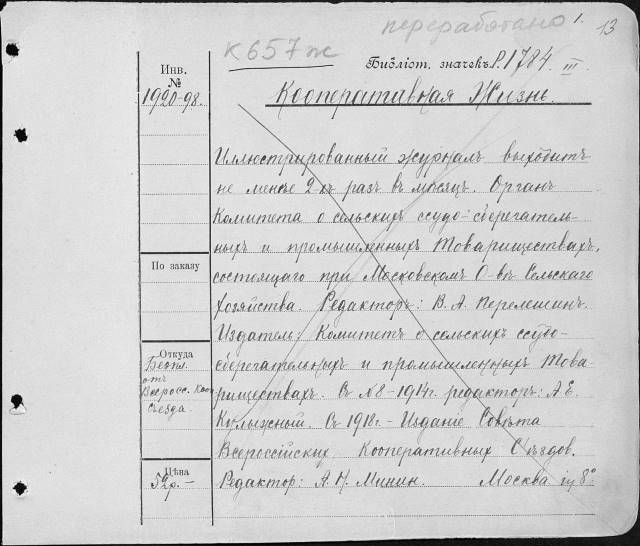 переработано 1. 13
К657ж
Библіот. значекъ Р.1784 III
Инв.
№
1920-98.
Кооперативная Жизнь.
Иллюстрированный журналъ выходитъ
не менѣе 2-хъ разъ въ мѣсяцъ. Органъ
Комитета о сельскихъ ссудо-сберегатель-
ныхъ и промышленныхъ Товариществахъ,
состоящаго при Московскомъ О-вѣ Сельскаго
Хозяйства. Редакторъ: В. А. Перелешинъ.
Издатель: Комитетъ о сельскихъ ссудо-
сберегательныхъ и промышленныхъ Това-
риществахъ. Съ №8-1914г. редакторъ: А. Е.
Кулыжный. Съ 1918г.- Изданіе Совѣта
Всероссійскихъ Кооперативныхъ Съѣздов.
Редактор: А. Н. Минин. Москва 8°
По заказу
Откуда
Безпл.
отъ
Всеросс. Кооп
Съезда.
Цѣна
52р.-